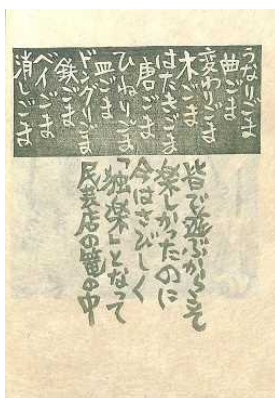 うなりごま
曲ごま
変わりごま
木ごま
はたきごま
唐ごま
ひねりごま
皿ごま
ドングリごま
鉄ごま
ベイごま
消しごま
皆で遊ぶからこそ
楽しかったのに
今はさびしく
「独楽」となって
民芸店の篭の中